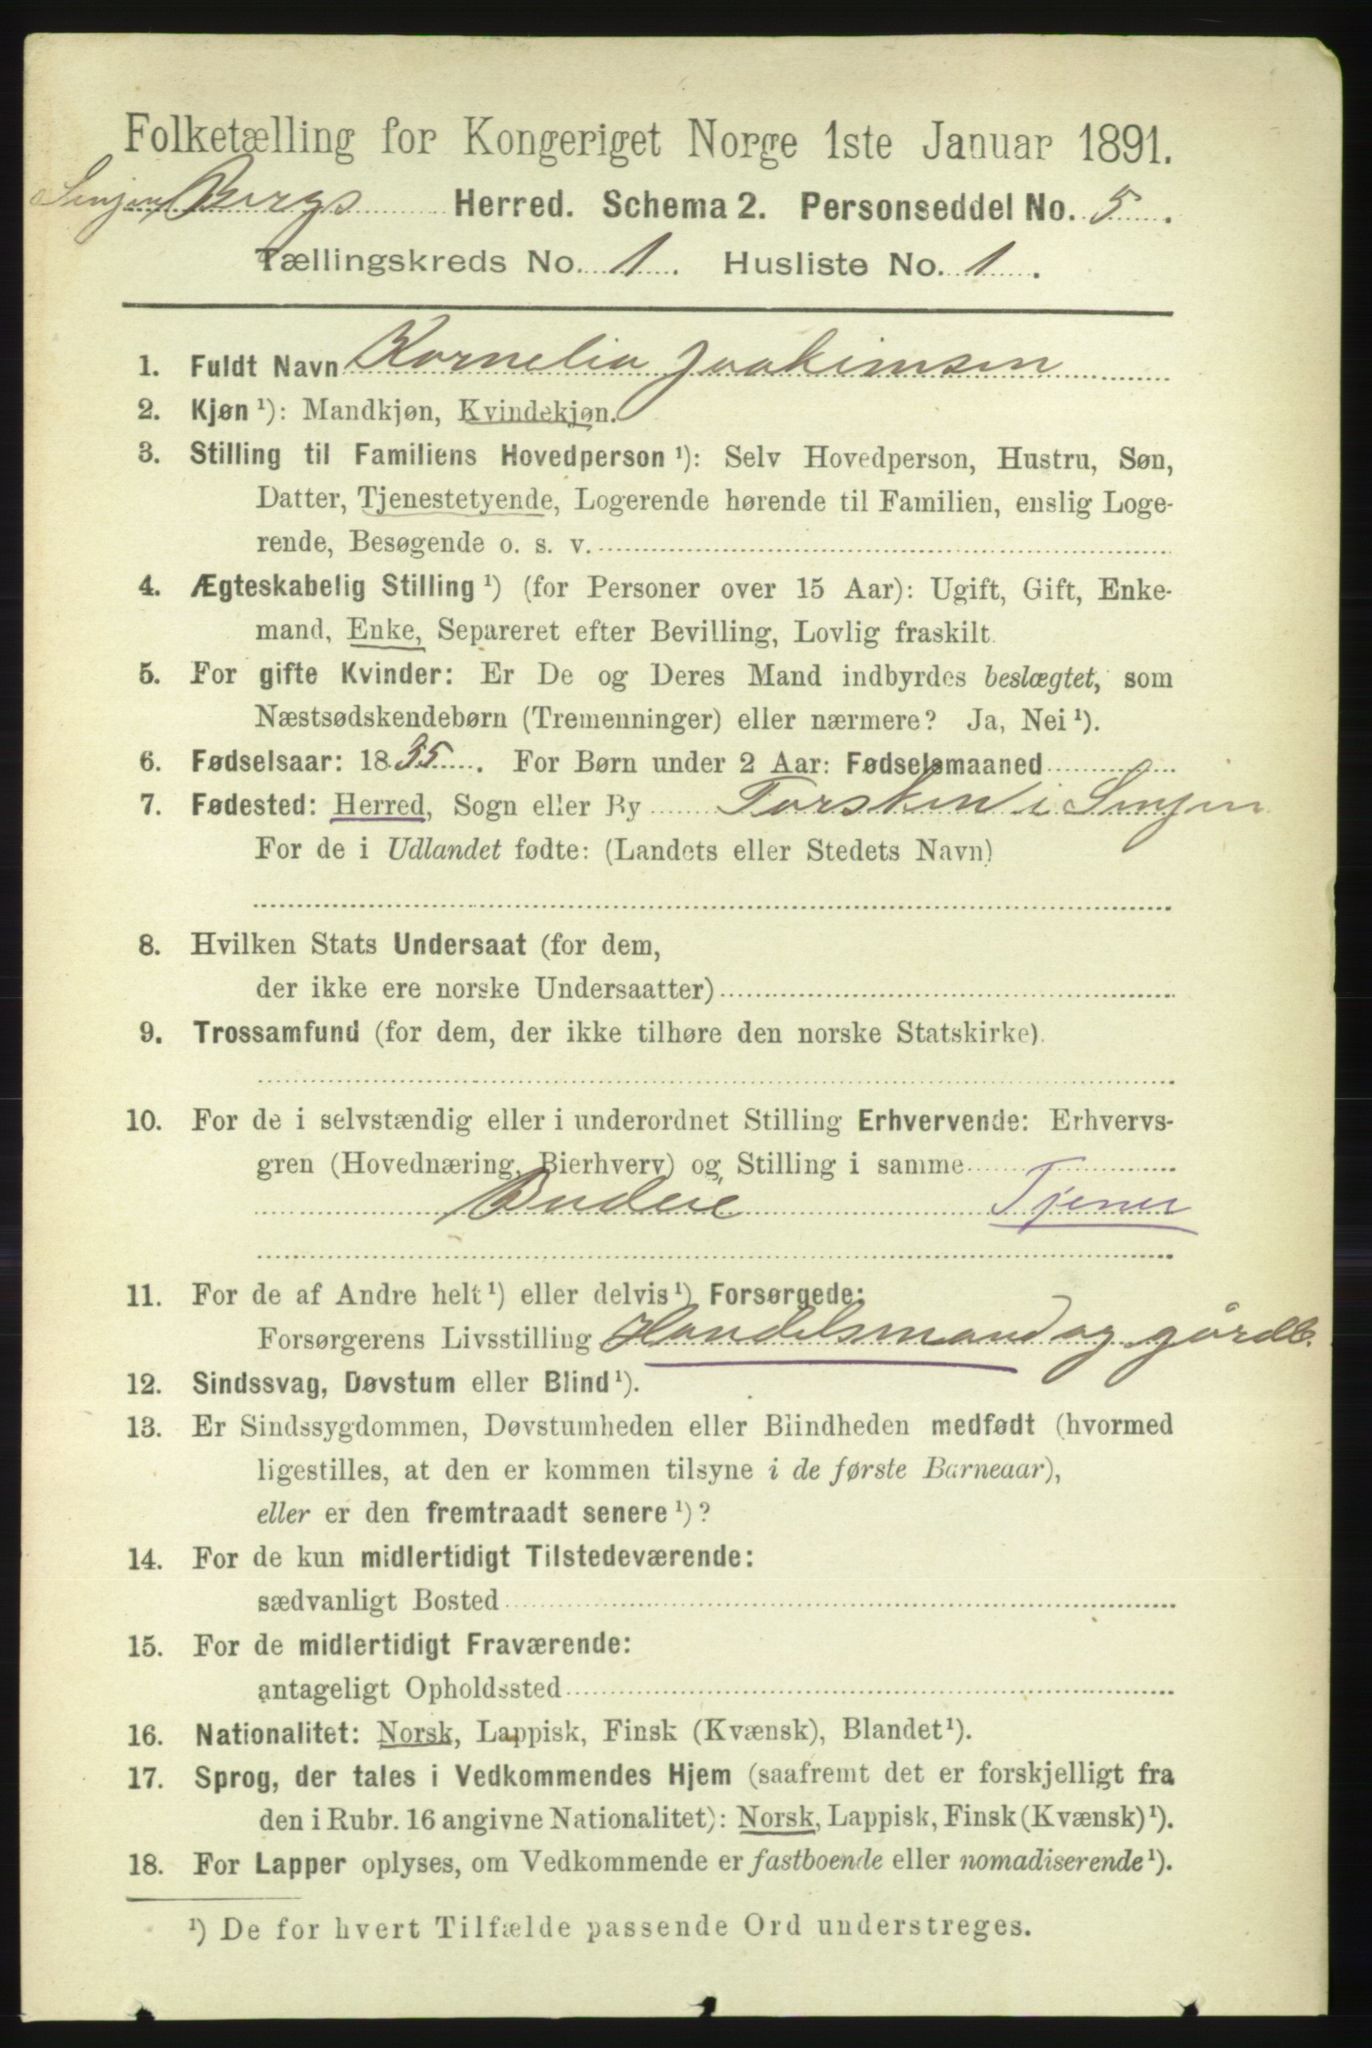 Folketælling for Kongeriget Norge 1ste Januar 1891.
Senjen Bergs Herred. Schema 2. Personseddel No. 5.
Tællingskreds No. 1. Husliste No. 1.
1. Fuldt Navn Kornelia Joakimsen
2. Kjøn ¹): Mandkjøn, Kvindekjøn.
3. Stilling til Familiens Hovedperson ¹): Selv Hovedperson, Hustru, Søn,
Datter, Tjenestetyende, Logerende hørende til Familien, enslig Loge-
rende, Besøgende o. s. v.
4. Ægteskabelig Stilling ¹) (for Personer over 15 Aar): Ugift, Gift, Enke-
mand, Enke, Separeret efter Bevilling, Lovlig fraskilt.
5. For gifte Kvinder: Er De og Deres Mand indbyrdes beslægtet, som
Næstsødskendebørn (Tremenninger) eller nærmere? Ja, Nei ¹).
6. Fødselsaar: 1835. For Børn under 2 Aar: Fødselsmaaned
7. Fødested: Herred, Sogn eller By Torsken i Senjen
For de i Udlandet fødte: (Landets eller Stedets Navn)
8. Hvilken Stats Undersaat (for dem,
der ikke ere norske Undersaatter)
9. Trossamfund (for dem, der ikke tilhøre den norske Statskirke).
10. For de i selvstændig eller i underordnet Stilling Erhvervende: Erhvervs-
gren (Hovednæring, Bierhverv) og Stilling i samme
Budeie Tjener
11. For de af Andre helt ¹) eller delvis ¹) Forsørgede:
Forsørgerens Livsstilling Handelsmand og gårdb.
12. Sindssvag, Døvstum eller Blind ¹).
13. Er Sindssygdommen, Døvstumheden eller Blindheden medfødt (hvormed
ligestilles, at den er kommen tilsyne i de første Barneaar),
eller er den fremtraadt senere ¹)?
14. For de kun midlertidigt Tilstedeværende:
sædvanligt Bosted
15. For de midlertidigt Fraværende:
antageligt Opholdssted
16. Nationalitet: Norsk, Lappisk, Finsk (Kvænsk), Blandet ¹).
17. Sprog, der tales i Vedkommendes Hjem (saafremt det er forskjelligt fra
den i Rubr. 16 angivne Nationalitet): Norsk, Lappisk, Finsk (Kvænsk) ¹).
18. For Lapper oplyses, om Vedkommende er fastboende eller nomadiserende ¹).
¹) De for hvert Tilfælde passende Ord understreges.